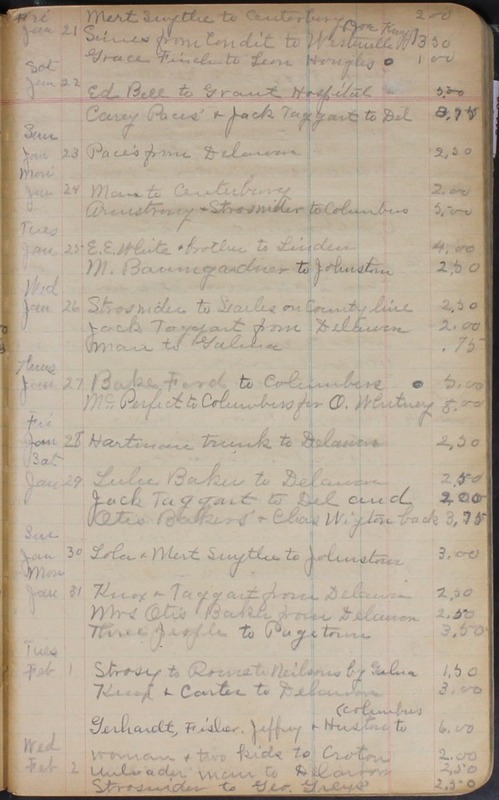 Fri
Jan 21 Mert Smythe to Centerburg 2.00
from Condit to Westerville 3.50
Grace Finch to Leon Hongles 1.00
Sat
Jan 22 Ed Bell to Grant Hospital 5.00
Carey Paces' & Jack Taggart to Del 3,75
Sun
Jan 23 Paces from Delawan 2,50
Mon
Jan 24 Man to Centerburg 2.00
Armstrong & Strosnider to Columbus 5,00
Tues
Jan 25 E.E. White & brother to Linden 4.00
M. Baumgardner to Johnstown 2,50
Wed
Jan 26 Strosnider to Searles on County line 2,50
Jack Taggart from Delawan 2.00
Man to Galena .75
Thurs
Jan 27 Bake Ford to Columbus 5.00
Mc Perfect to Columbus for O. Whitney 5.00
Fri
Jan 28 Hartman trunk to Delawan 2,50
Sat
Jan 29 Lulu Baker to Delawan 2,50
Jack Taggart to Del and 2.00
Otis Bakers' & Chas Wigton back 3,75
Sun
Jan 30 Lola & Mert Smythe to Johnstown 3.00
Mon
Jan 31 Knox & Taggart from Delawan 2,50
Mrs Otis Baker from Delawan 2,50
Three people to Pagetown 3,50
Tues
Feb 1 Strosy to Rome to Neilsons by Galena 1,50
Knox & Carter to Delawan 3.00
(Columbus
Gerhardt, Fisher, Jeffrey & Huston to 6.00
Wed
Feb 2 woman & two kids to Croton 2.00
unloader man to Delawan 2,50
Strosnider to Geo. Greys' 2,50